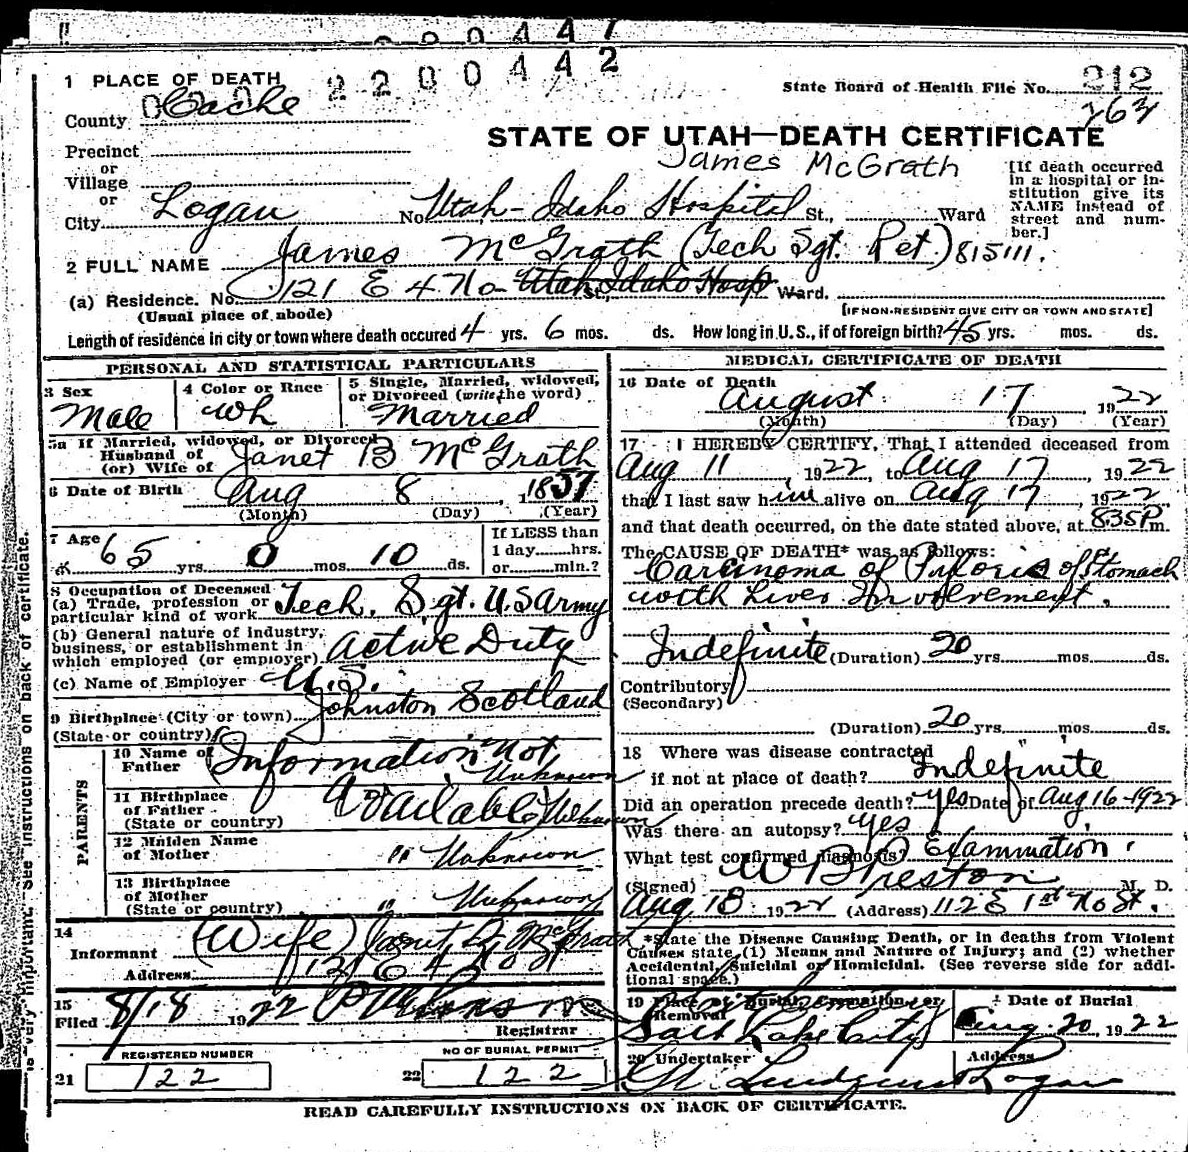 2200442
1 PLACE OF DEATH
State Board of Health File No. 212
263
County Cache
STATE OF UTAH—DEATH CERTIFICATE
James McGrath
Precinct
or
Village
or
City Logan No. Utah-Idaho Hospital St., Ward
[If death occurred in a hospital or institution give its NAME instead of street and number.]
2 FULL NAME James McGrath (Tech Sgt. Ret.) 815111.
(a) Residence. No. 121 E 4 No Utah Idaho Hosp St., Ward.
(Usual place of abode) [IF NON-RESIDENT GIVE CITY OR TOWN AND STATE]
Length of residence in city or town where death occured 4 yrs. 6 mos. ds. How long in U.S., if of foreign birth? 45 yrs. mos. ds.
PERSONAL AND STATISTICAL PARTICULARS
3 Sex Male
4 Color or Race Wh
5 Single, Married, widowed, or Divorced (write the word) Married
5a If Married, widowed, or Divorced
Husband of
(or) Wife of Janet B McGrath
6 Date of Birth Aug 8, 1857
(Month) (Day) (Year)
7 Age 65 yrs. 0 mos. 10 ds.
If LESS than
1 day......hrs.
or......min.?
8 Occupation of Deceased
(a) Trade, profession or
particular kind of work Tech. Sgt. U.S Army
(b) General nature of industry,
business, or establishment in
which employed (or employer) Active Duty
(c) Name of Employer U.S.
9 Birthplace (City or town) Johnston Scotland
(State or country)
PARENTS
10 Name of
Father Information Not
Unknown
11 Birthplace
of Father Available Unknown
(State or country)
12 Maiden Name
of Mother " Unknown
13 Birthplace
of Mother " Unknown
(State or country)
14
Informant (Wife) Janet B McGrath
Address 121 E 4 No St
15
Filed 8/18 1922
Registrar
REGISTERED NUMBER
21 122
NO OF BURIAL PERMIT
22 122
MEDICAL CERTIFICATE OF DEATH
16 Date of Death
August 17 1922
(Month) (Day) (Year)
17 I HEREBY CERTIFY, That I attended deceased from
Aug 11, 1922, to Aug 17, 1922
that I last saw him alive on Aug 17 1922
and that death occurred, on the date stated above, at 835P m.
The CAUSE OF DEATH* was as follows:
Carcinoma of Pyloris of Stomach
with Liver Involvement.
Indefinite (Duration) 20 yrs. mos. ds.
Contributory
(Secondary)
(Duration) 20 yrs. mos. ds.
18 Where was disease contracted
if not at place of death? Indefinite
Did an operation precede death? yes Date of Aug 16-1922
Was there an autopsy? yes
What test confirmed diagnosis? Examination.
(Signed) W B Preston M. D.
Aug 18 1922 (Address) 112 E 1st No St.
*State the Disease Causing Death, or in deaths from Violent
Causes state (1) Means and Nature of Injury; and (2) whether
Accidental, Suicidal or Homicidal. (See reverse side for additional space.)
19 Place of Burial, Cremation, or
Removal
Salt Lake City
Date of Burial
Aug. 20, 1922
20 Undertaker
Address
Logan
READ CAREFULLY INSTRUCTIONS ON BACK OF CERTIFICATE.
is very important. See instructions on back of certificate.